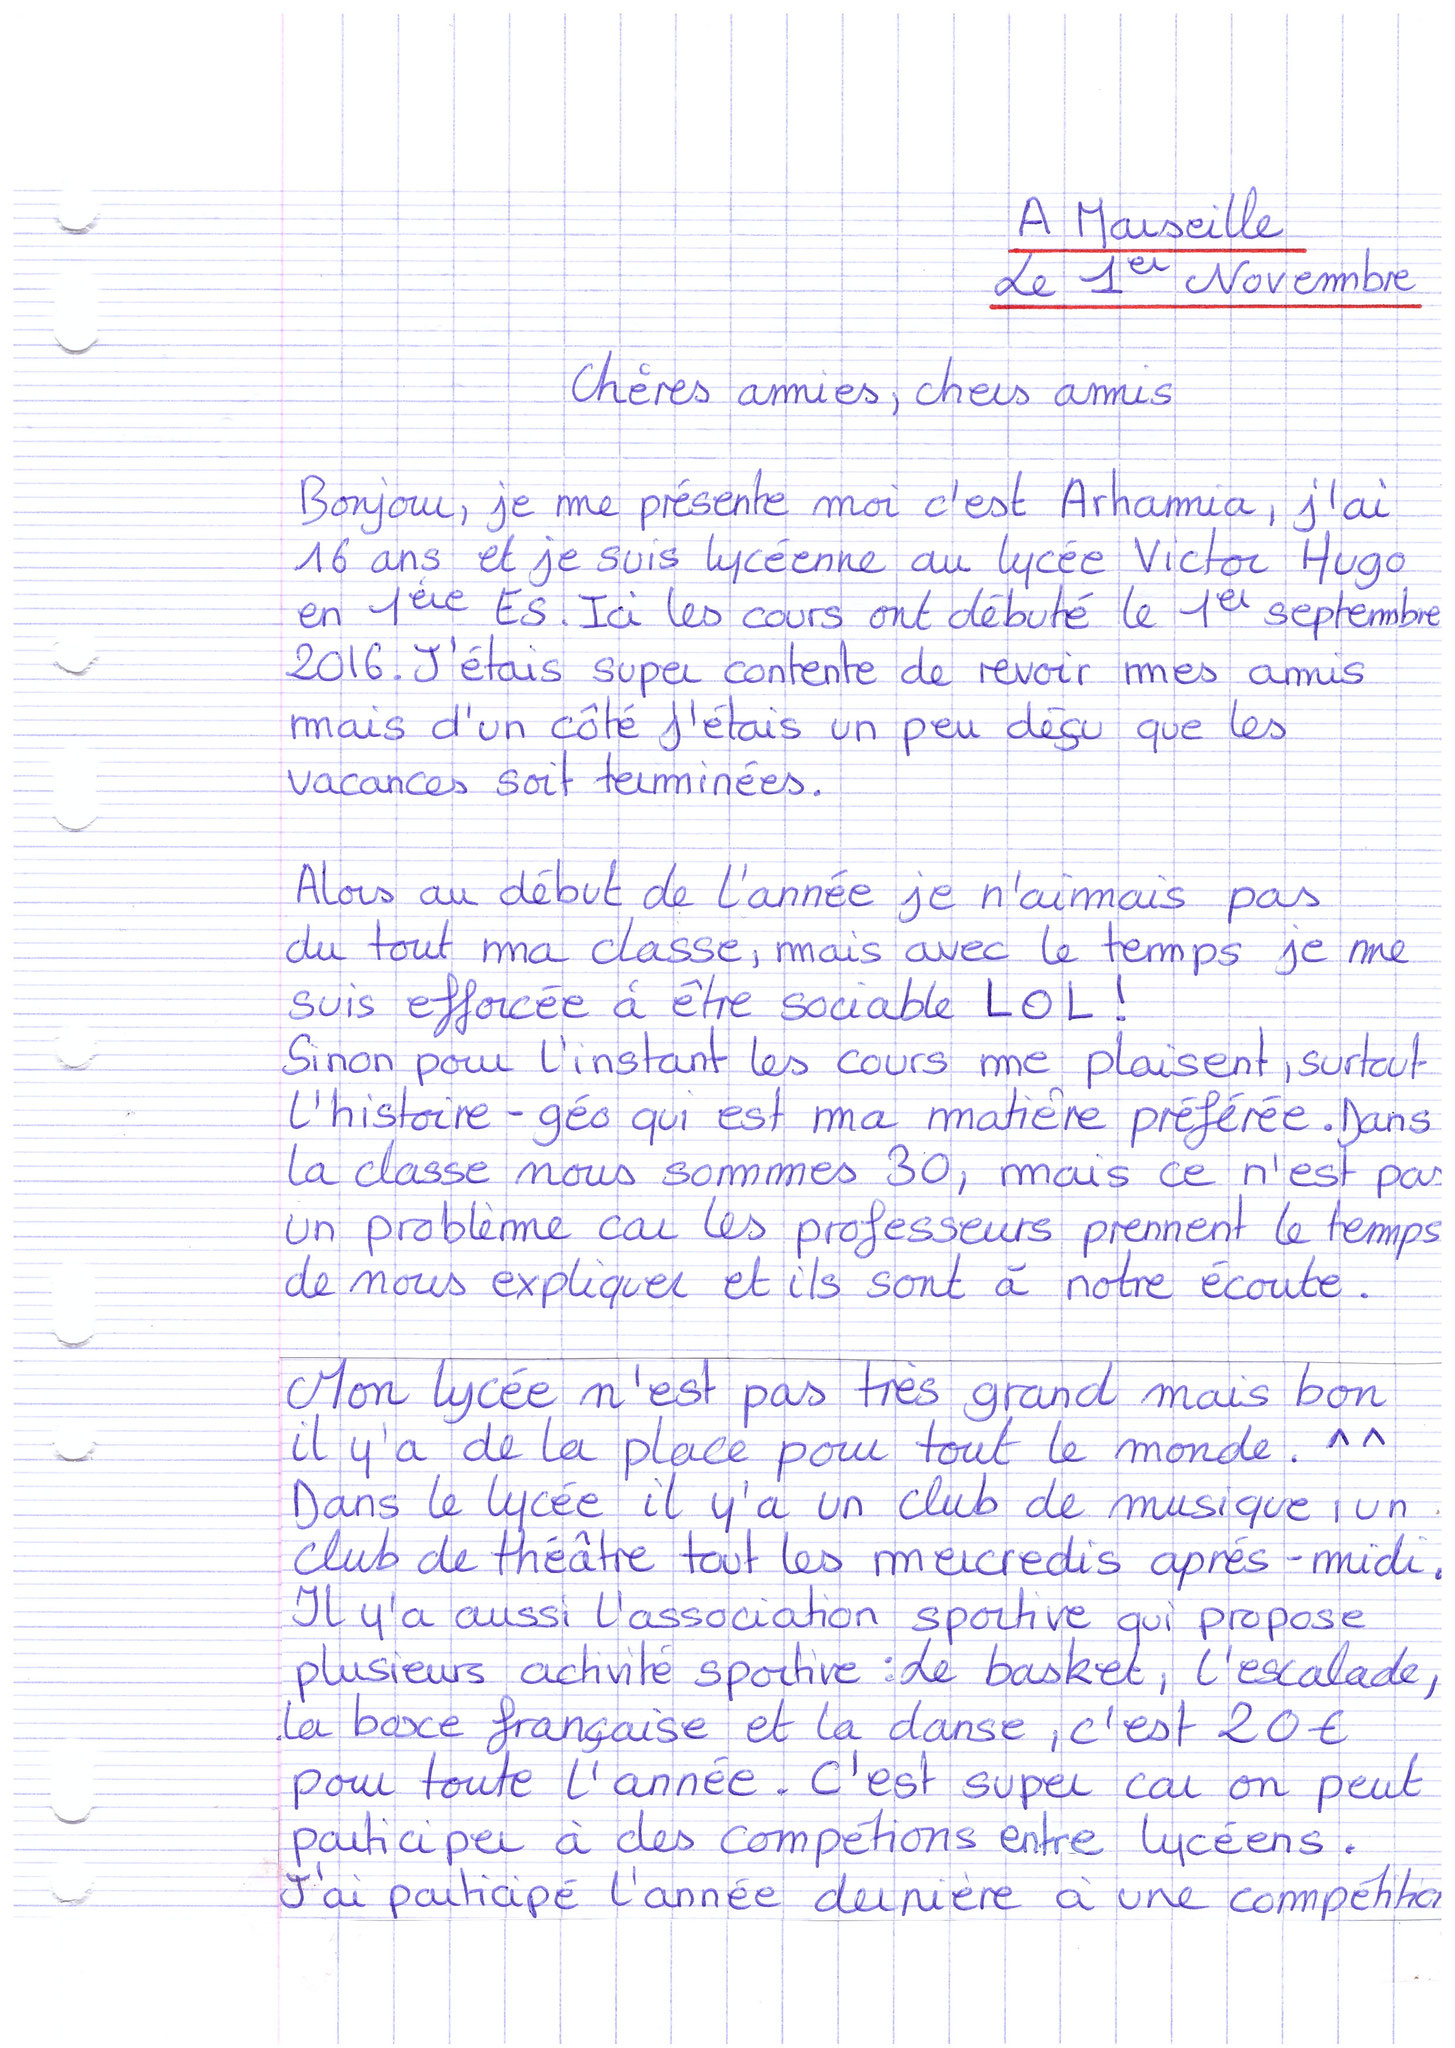 A Marseille
Le 1er Novembre
Chères amies, chers amis
Bonjour, je me présente moi c'est Arhamia, j'ai
16 ans et je suis lycéenne au lycée Victor Hugo
en 1ère ES. Ici les cours ont débuté le 1er septembre
2016. J'étais super contente de revoir mes amis
mais d'un côté j'étais un peu déçu que les
vacances soit terminées.
Alors au début de l'année je n'aimais pas
du tout ma classe, mais avec le temps je me
suis efforcée à être sociable LOL!
Sinon pour l'instant les cours me plaisent, surtout
l'histoire-géo qui est ma matière préférée. Dans
la classe nous sommes 30, mais ce n'est pas
un problème car les professeurs prennent le temps
de nous expliquer et ils sont à notre écoute.
Mon lycée n'est pas très grand mais bon
il y'a de la place pour tout le monde. ^^
Dans le lycée il y'a un club de musique, un
club de théâtre tout les mercredis après-midi.
Il y'a aussi l'association sportive qui propose
plusieurs activité sportive : Le basket, l'escalade,
la boxe française et la danse, c'est 20€
pour toute l'année. C'est super car on peut
participer à des compétions entre lycéens.
J'ai participé l'année dernière à une compétition